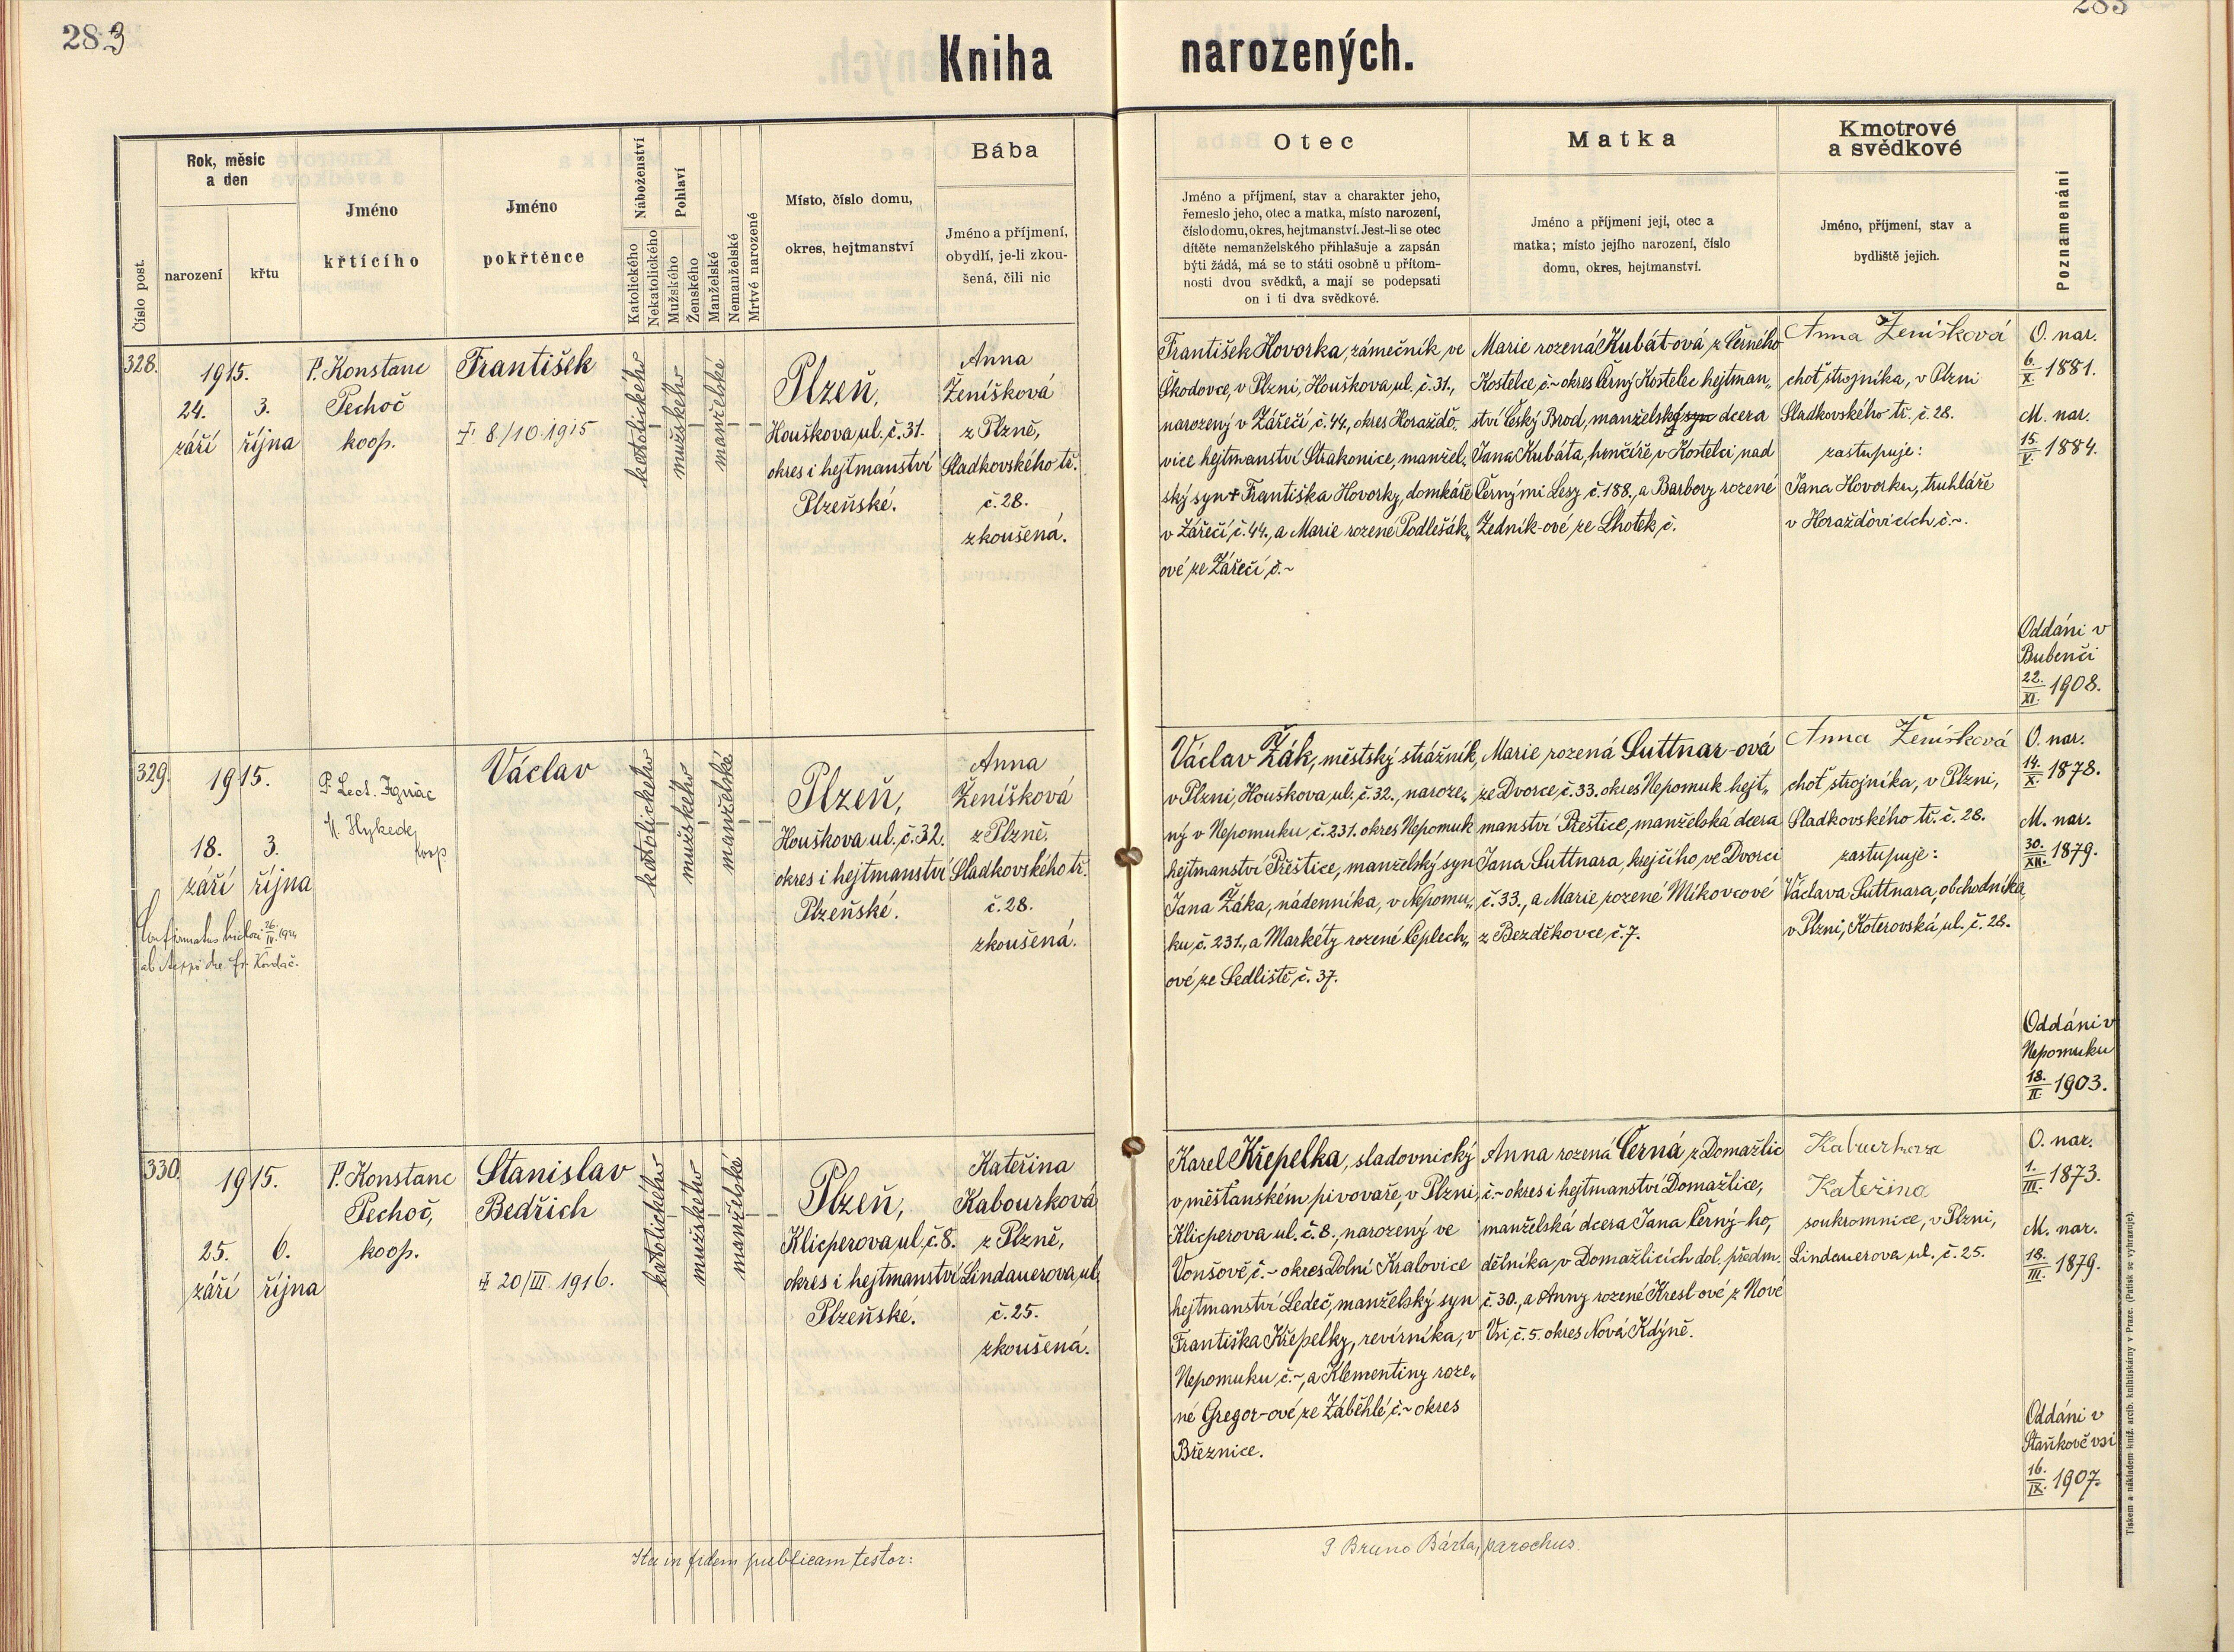 283
Kniha narozených.
283
Číslo post.
Rok, měsíc
a den
narození
křtu
Jméno
křtícího
Jméno
pokřtěnce
Náboženství
Katolického
Nekatolického
Pohlaví
Mužského
Ženského
Manželské
Nemanželské
Mrtvě narozené
Místo, číslo domu,
okres, hejtmanství
Bába
Jméno a příjmení,
obydlí, je-li zkou-
šená, čili nic
Otec
Jméno a příjmení, stav a charakter jeho,
řemeslo jeho, otec a matka, místo narození,
číslo domu, okres, hejtmanství. Jest-li se otec
dítěte nemanželského přihlašuje a zapsán
býti žádá, má se to státi osobně u přítom-
nosti dvou svědků, a mají se podepsati
on i ti dva svědkové.
Matka
Jméno a příjmení její, otec a
matka; místo jejího narození, číslo
domu, okres, hejtmanství.
Kmotrové
a svědkové
Jméno, příjmení, stav a
bydliště jejich.
Poznamenání
328.
1915.
24. 3.
září října
P. Konstanc
Pechoč
koop.
František
† 8/10 1915
katolického
mužského
manželské
Plzeň,
Houškova ul. č. 31.
okres i hejtmanství
Plzeňské.
Anna
Ženíšková
z Plzně,
Sladkovského tř.
č. 28.
zkoušená.
František Hovorka, zámečník ve
Škodovce, v Plzni, Houškova ul. č. 31.,
narozený v Zářečí č. 44., okres Horaždo„
vice hejtmanství Strakonice, manžel„
ský syn † Františka Hovorky, domkáře
v Zářečí č. 44., a Marie rozené Podlešák„
ové ze Zářečí č. ~
Marie rozená Kubát-ová z Černého
Kostelce, č. ~ okres Černý Kostelec hejtman„
ství Český Brod, manželská syn dcera
Jana Kubáta, hrnčíře, v Kostelci nad
Černými Lesy č. 188., a Barbory rozené
Zedník-ové ze Lhotek, č.
Anna Ženíšková
choť strojníka, v Plzni
Sladkovského tř. č. 28.
zastupuje:
Jana Hovorku, truhláře
v Horažďovicích č. ~.
O. nar.
6./X. 1881.
M. nar.
15./V. 1884.
Oddáni v
Bubenči
22./XI. 1908.
329.
1915.
18. 3.
září října
ab Kordač.
P. Lect. Ignác
M. Hykede
koop
Václav
katolického
mužského
manželské
Plzeň,
Houškova ul. č. 32.
okres i hejtmanství
Plzeňské.
Anna
Ženíšková
z Plzně,
Sladkovského tř.
č. 28.
zkoušená.
Václav Žák, městský strážník,
v Plzni, Houškova ul. č. 32., naroze„
ný v Nepomuku, č. 231. okres Nepomuk
hejtmanství Přeštice, manželský syn
Jana Žáka, nádenníka, v Nepomu„
ku, č. 231., a Markéty rozené Ceplech„
ové ze Sedliště, č. 37.
Marie rozená Suttnar-ová
ze Dvorce, č. 33. okres Nepomuk hejt„
manství Přeštice, manželská dcera
Jana Suttnara, krejčího ve Dvorci
č. 33., a Marie rozené Mikovcové
z Bezděkovce, č. 7.
Anna Ženíšková
choť strojníka, v Plzni,
Sladkovského tř. č. 28.
zastupuje:
Václava Suttnara, obchodníka,
v Plzni, Koterovská ul. č. 28.
O. nar.
14./X. 1878.
M. nar.
30./XII. 1879.
Oddáni v
Nepomuku
18./II. 1903.
330.
1915.
25. 6.
září října
P. Konstanc
Pechoč,
koop.
Stanislav
Bedřich
† 20/III. 1916.
katolického
mužského
manželské
Plzeň,
Klicperova ul. č. 8.
okres i hejtmanství
Plzeňské.
Kateřina
Kabourková
z Plzně,
Lindauerova ul.
č. 25.
zkoušená.
Karel Křepelka, sladovnický
v měšťanském pivovaře, v Plzni,
Klicperova ul. č. 8., narozený ve
Vonšově, č. ~ okres Dolní Kralovice
hejtmanství Ledeč, manželský syn
Františka Křepelky, revírníka, v
Nepomuku č. ~, a Klementiny roze„
né Gregor-ové ze Záběhlé, č. ~ okres
Březnice.
Anna rozená Černá z Domažlic
č. ~ okres i hejtmanství Domažlice,
manželská dcera Jana Černý-ho,
dělníka, v Domažlicích dol. předm.
č. 30., a Anny rozené Kresl-ové z Nové
Vsi, č. 5. okres Nová Kdýně.
Kateřina
soukromnice, v Plzni,
Lindauerova ul. č. 25.
O. nar.
1./III. 1873.
M. nar.
18./III. 1879.
Oddáni v
Staňkově vsi
16./IX. 1907.
Ita in fidem publicam testor:
P Bruno Bárta, parochus.
Tiskem a nákladem kníž. arcib. knihtiskárny v Praze. (Patisk se vyhrazuje).